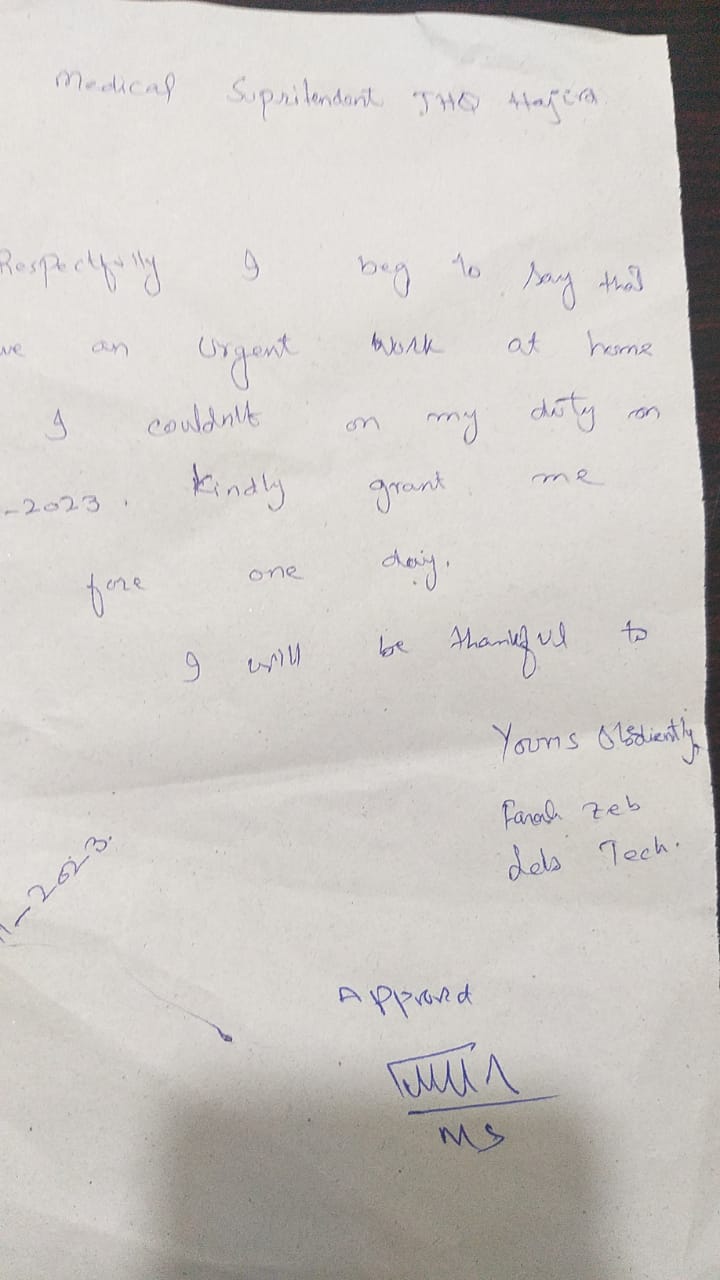 Medical Supritendant THQ Hajira
Respectfully I beg to say that
ve an urgent work at home
I couldn't on my duty on
-2023. Kindly grant me
fore one day.
I will be thankful to
Yours Obediently,
Farah Zeb
Leb Tech.
11-2023.
Approved
MS